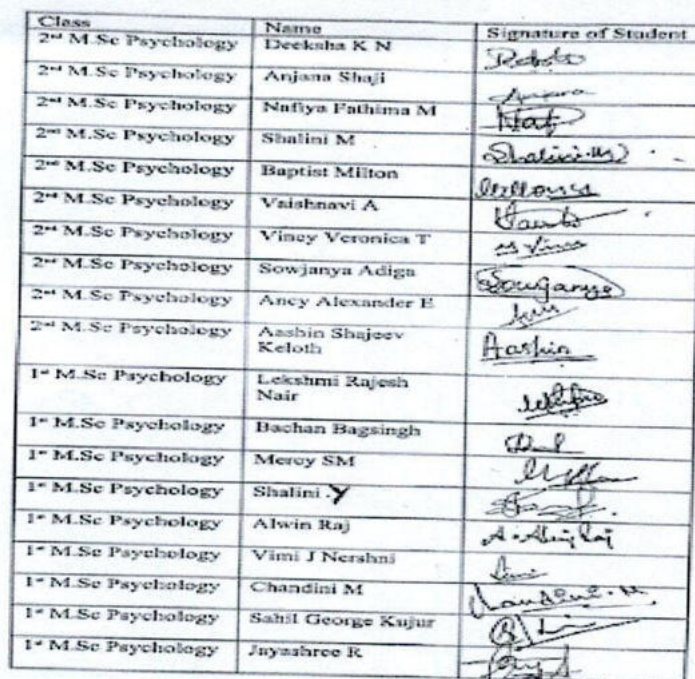 Class Name Signature of Student
2nd M.Sc Psychology Deeksha K N
2nd M.Sc Psychology Anjana Shaji Anjana
2nd M.Sc Psychology Nafiya Fathima M Naf
2nd M.Sc Psychology Shalini M Shalini.M
2nd M.Sc Psychology Baptist Milton
2nd M.Sc Psychology Vaishnavi A
2nd M.Sc Psychology Vincy Veronica T
2nd M.Sc Psychology Sowjanya Adiga Sowjanya
2nd M.Sc Psychology Ancy Alexander E
2nd M.Sc Psychology Aashin Shajeev Aashin
Keloth
1st M.Sc Psychology Lekshmi Rajesh
Nair
1st M.Sc Psychology Bachan Bagsingh
1st M.Sc Psychology Mercy SM
1st M.Sc Psychology Shalini .Y
1st M.Sc Psychology Alwin Raj A. Alwin Raj
1st M.Sc Psychology Vimi J Nershni
1st M.Sc Psychology Chandini M Chandini.M
1st M.Sc Psychology Sahil George Kujur
1st M.Sc Psychology Jayashree R